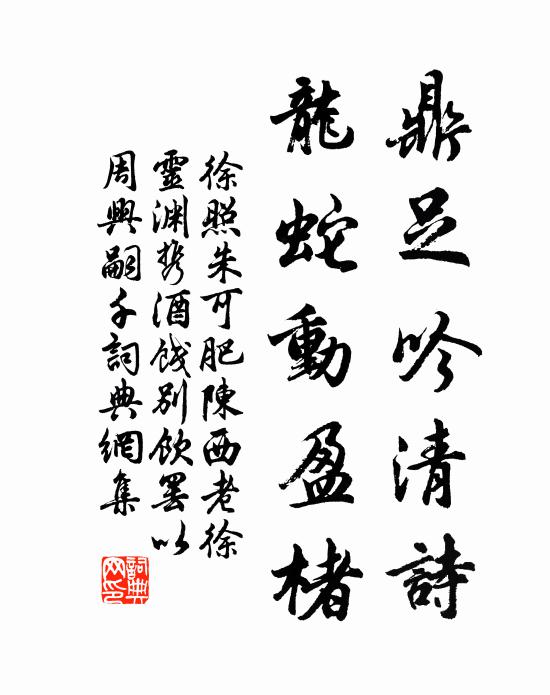 鼎足吟清詩
龍蛇動盈楮
徐照朱可肥陳西老徐
靈淵携酒餞別飲罷以
周興嗣千詞典網集
詞典網印